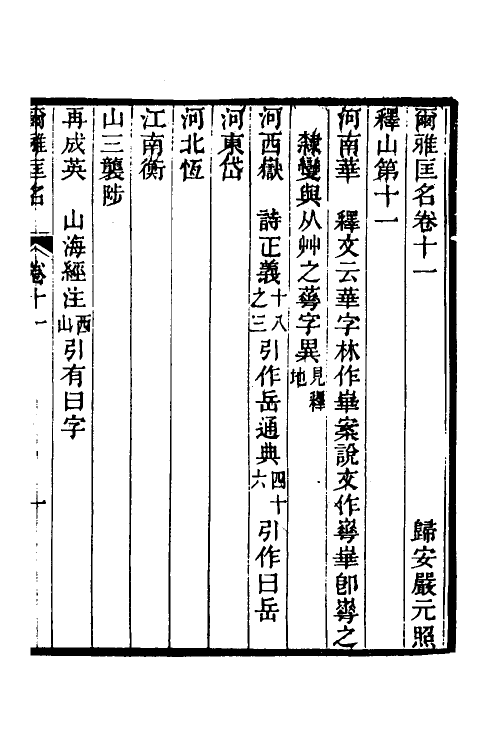 爾雅匡名卷十一
歸安嚴元照
釋山第十一
河南華 釋文云華字林作崋案說文作𡹎崋卽𡹎之
隸變與从艸之蕚字異見釋地
河西嶽 詩正義十八之三引作岳通典四十六引作曰岳
河東岱
河北恆
江南衡
山三襲陟
再成英 山海經注西山引有曰字
爾雅匡名 卷十一 一